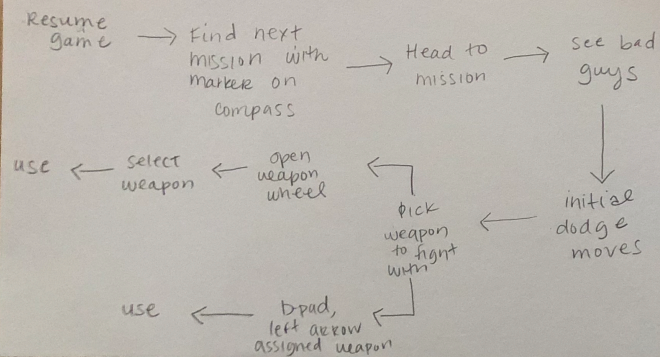 Resume
game
Find next
mission with
marker on
compass
Head to
mission
see bad
guys
initial
dodge
moves
pick
weapon
to fight
with
open
weapon
wheel
select
weapon
use
D-pad,
left arrow
assigned weapon
use